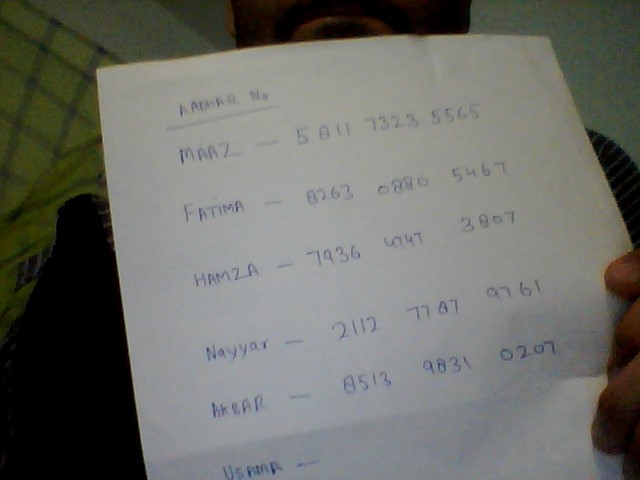 AADHAR No
MAAZ — 5811 7323 5565
FATIMA — 8263 0880 5467
HAMZA — 7936 4747 3807
Nayyar — 2112 7787 9761
AKBAR — 8513 9831 0207
USAMA —